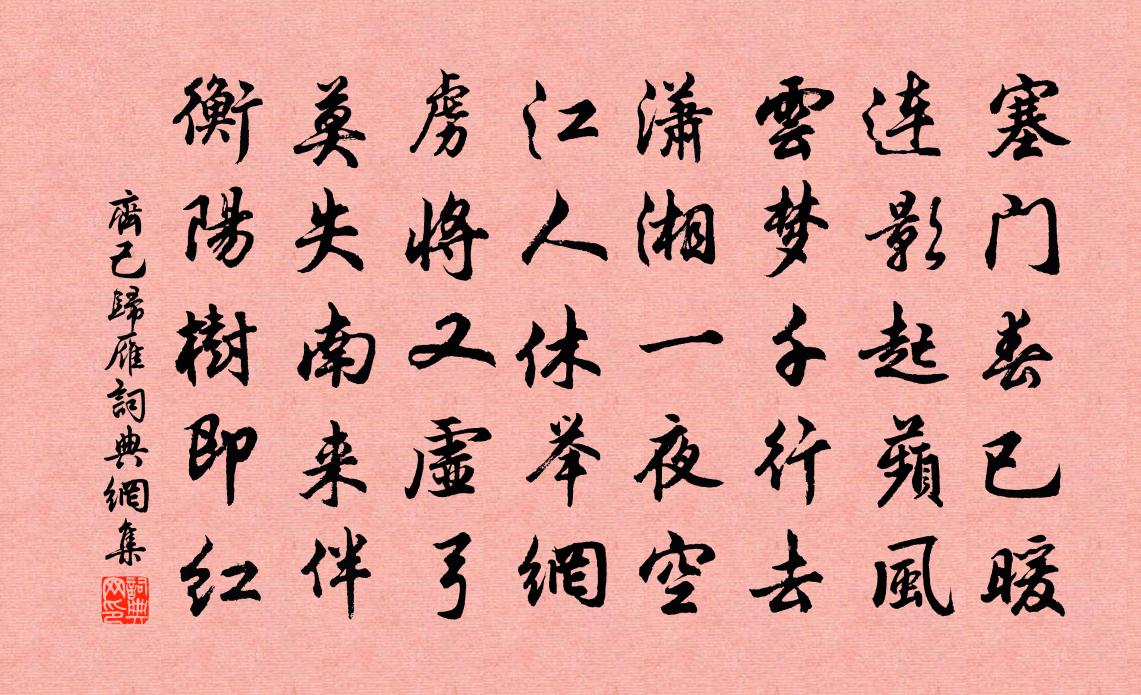 塞门春已暖
连影起蘋風
雲梦千行去
潇湘一夜空
江人休举網
虏将又虚弓
莫失南来伴
衡陽樹即红
齊己歸雁詞典網集
詞典网印